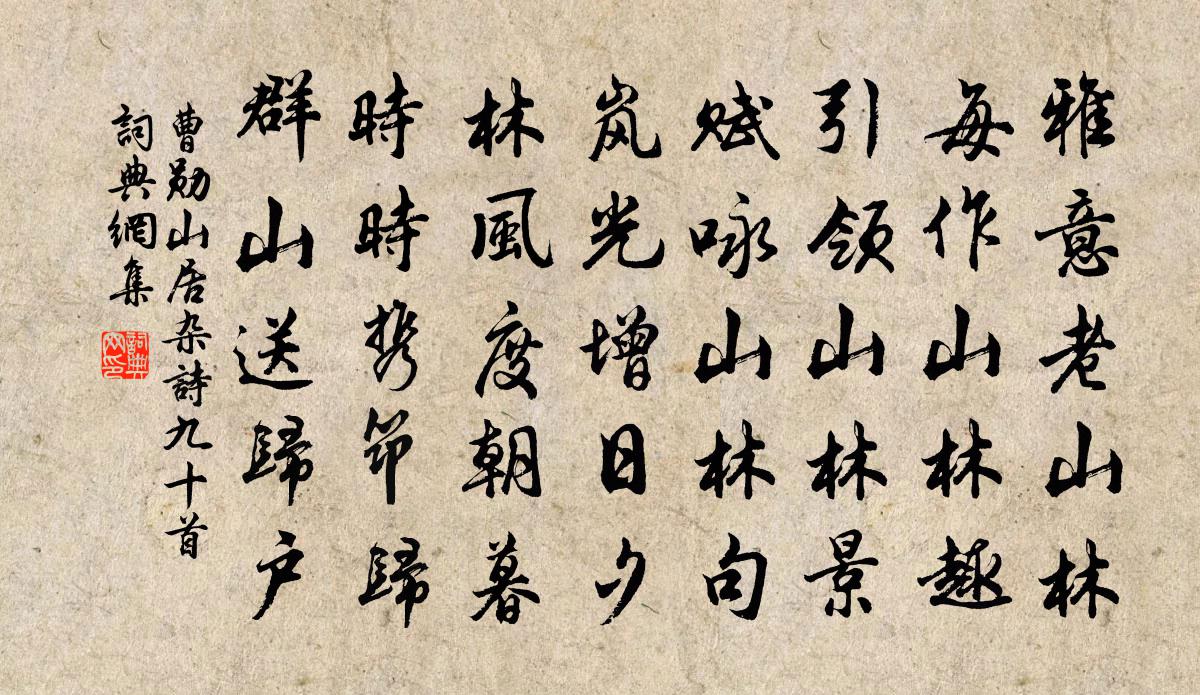 雅意老山林
每作山林趣
引領山林景
賦咏山林句
岚光增日夕
林風度朝暮
時時携筇歸
群山送歸户
曹勛山居杂詩九十首
詞典網集
詞典网印